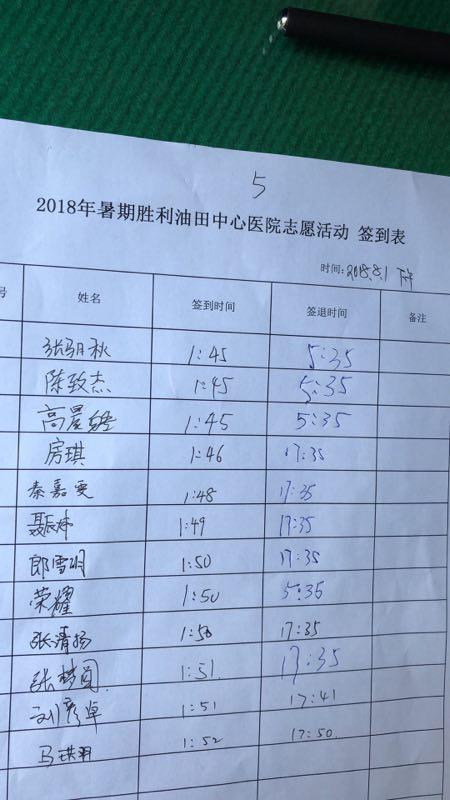 5
2018年暑期胜利油田中心医院志愿活动 签到表
时间: 2018.8.1 下午
号 姓名 签到时间 签退时间 备注
1:45 5:35
陈致杰 1:45 5:35
高星 1:45 5:35
房琪 1:46 17:35
秦嘉雯 1:48 17:35
1:49 17:35
郎雪明 1:50 17:35
荣耀 1:50 5:35
张清扬 1:50 17:35
张梦圆 1:51 17:35
刘彦卓 1:51 17:41
马琪羽 1:52 17:50